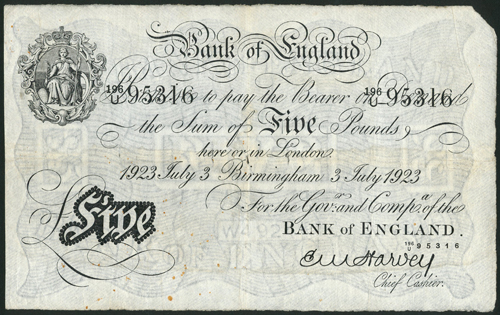 Bank of England
196/U 95316 196/U 95316
Promise to pay the Bearer on Demand
the Sum of Five Pounds
here or in London.
1923 July 3 Birmingham 3 July 1923
For the Govr. and Compa. of the
BANK OF ENGLAND.
196/U 95316
Five
C M Harvey
Chief Cashier.